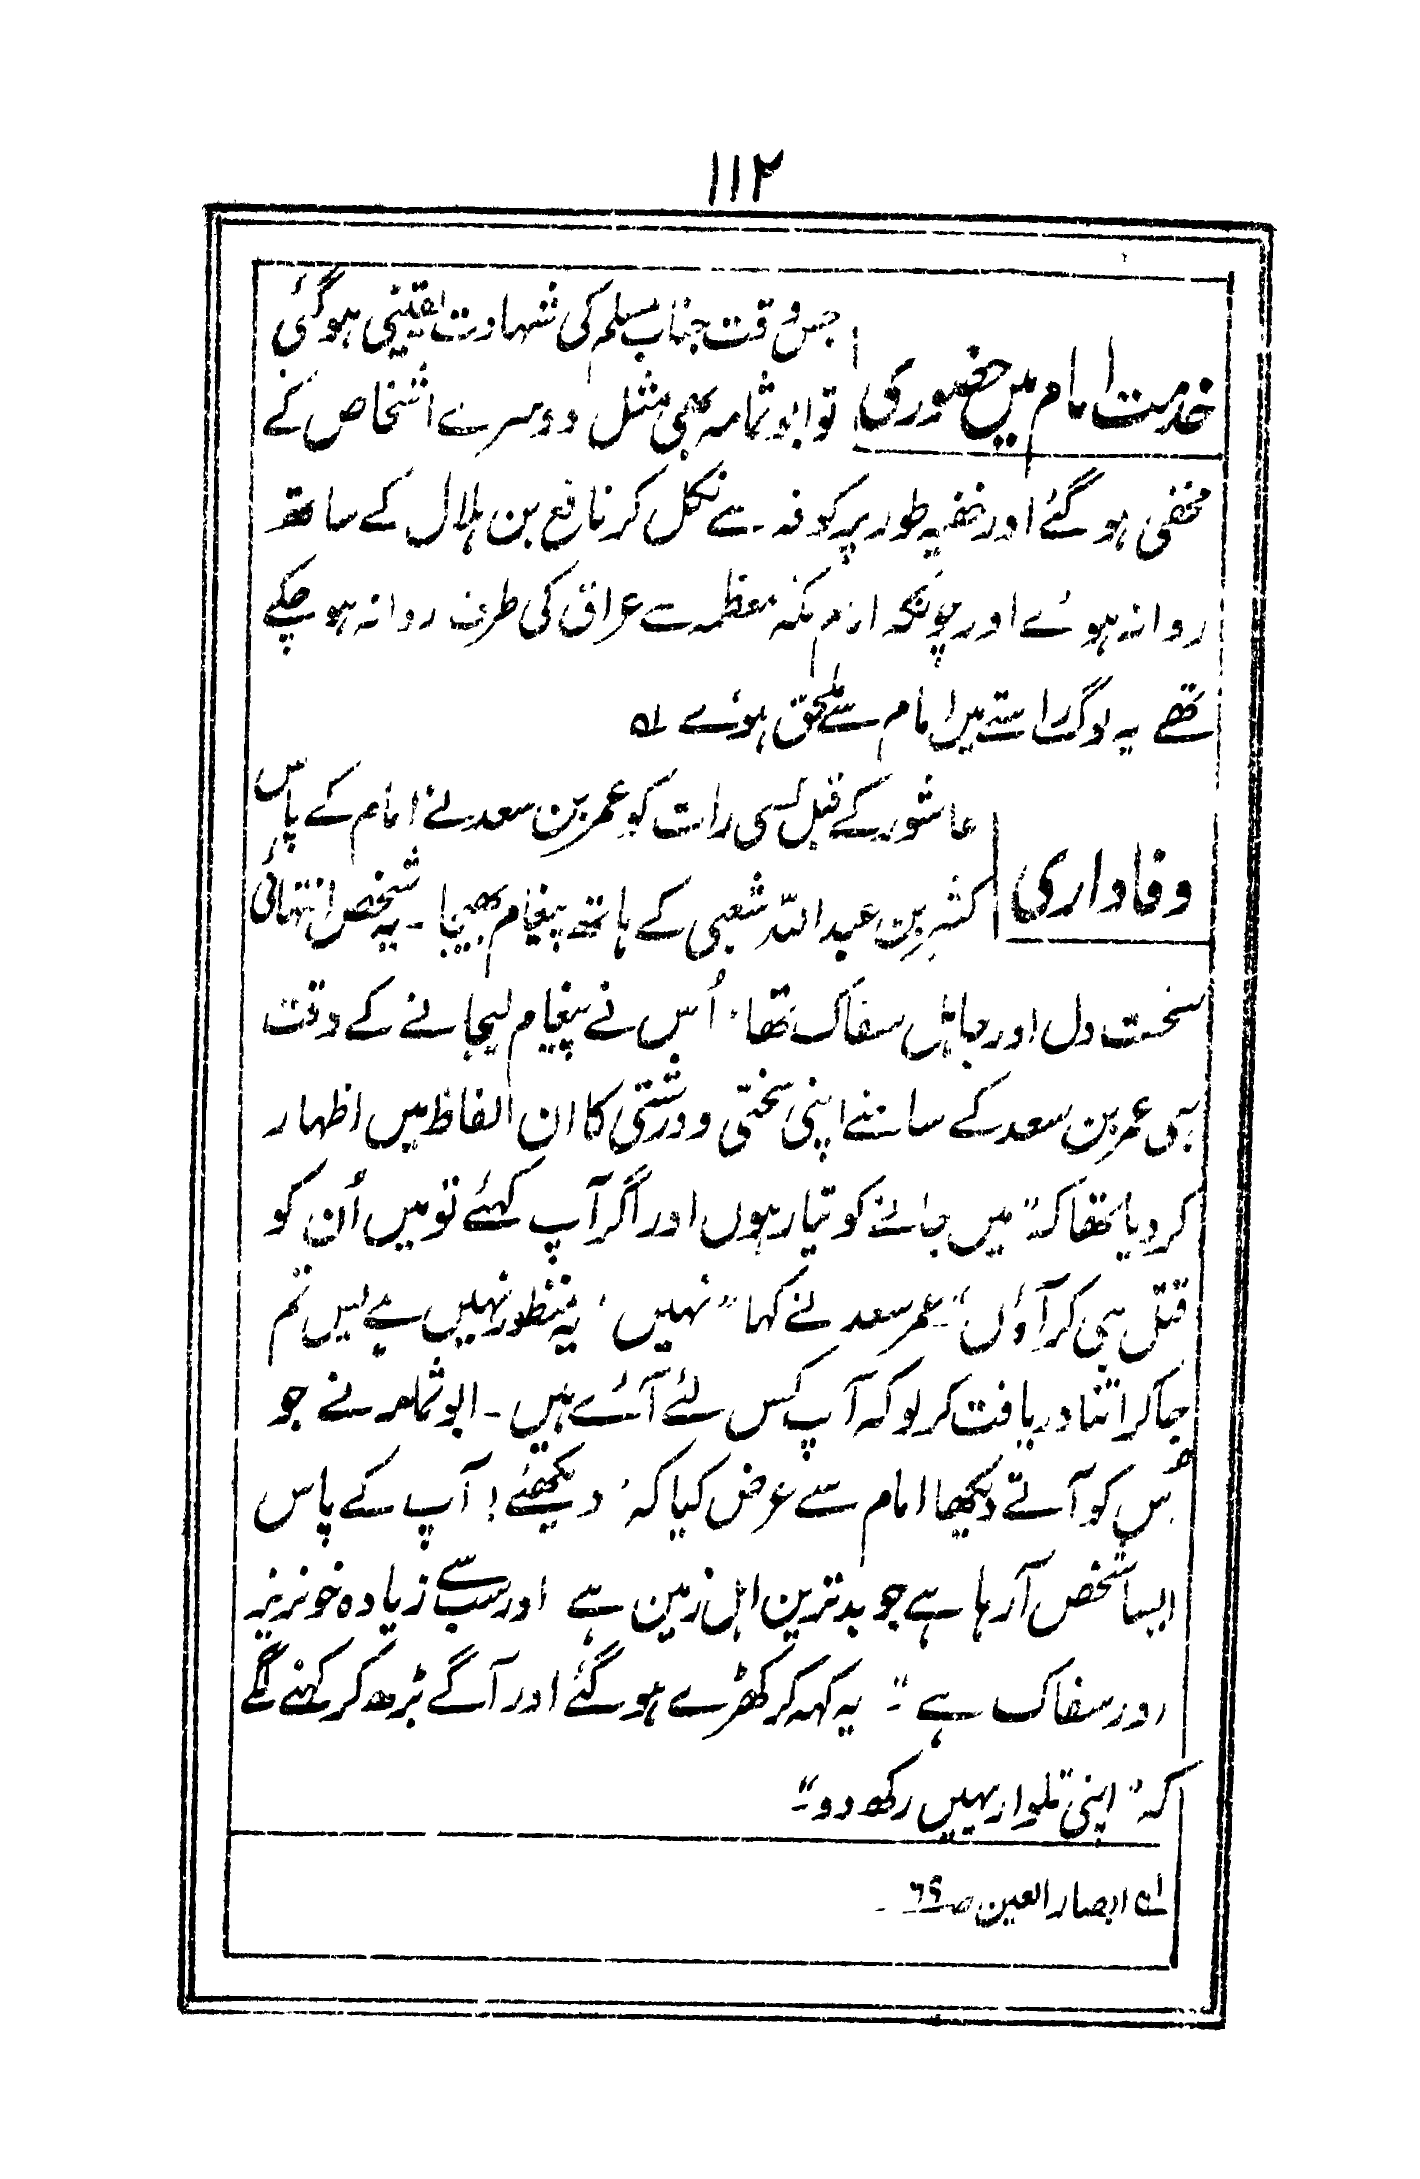 ۱۱۲
خدمت امام میں حضوری
جس وقت جناب مسلم کی شہادت یقینی ہوگئی
تو ابو ثمامہ بھی مثل دوسرے اشخاص کے
مخفی ہو گئے اور خفیہ طور پر کوفہ سے نکل کر نافع بن ہلال کے ساتھ
روانہ ہوئے اور چونکہ امام مکہ معظمہ سے عراق کی طرف روانہ ہو چکے
تھے یہ لوگ راستے میں امام سے ملحق ہوئے ۱ھ
وفاداری
عاشور کے قبل کسی رات کو عمر بن سعد نے امام کے پاس
کثیر بن عبداللہ شعبی کے ہاتھ پیغام بھیجا ۔ یہ شخص انتہائی
سخت دل اور جاہل سفاک تھا، اُس نے پیغام لیجانے کے وقت
ہی عمر بن سعد کے سامنے اپنی سختی و درشتی کا ان الفاظ میں اظہار
کر دیا تھا کہ "میں جانے کو تیار ہوں اور اگر آپ کہئے تو میں اُن کو
قتل ہی کر آؤں"۔ عمر سعد نے کہا "نہیں، یہ منظور نہیں ہے بس تم
جا کر اتنا دریافت کر لو کہ آپ کس لئے آئے ہیں ۔ ابو ثمامہ نے جو
اُس کو آتے دیکھا امام سے عرض کیا کہ، دیکھئے! آپ کے پاس
ایسا شخص آ رہا ہے جو بدترین اہل زمین ہے اور سب سے زیادہ خونریز
اور سفاک ہے"۔ یہ کہہ کر کھڑے ہو گئے اور آگے بڑھ کر کہنے لگے
کہ "اپنی تلوار یہیں رکھ دو"۔
۱ھ ابصار العین ص۶۹ ۔